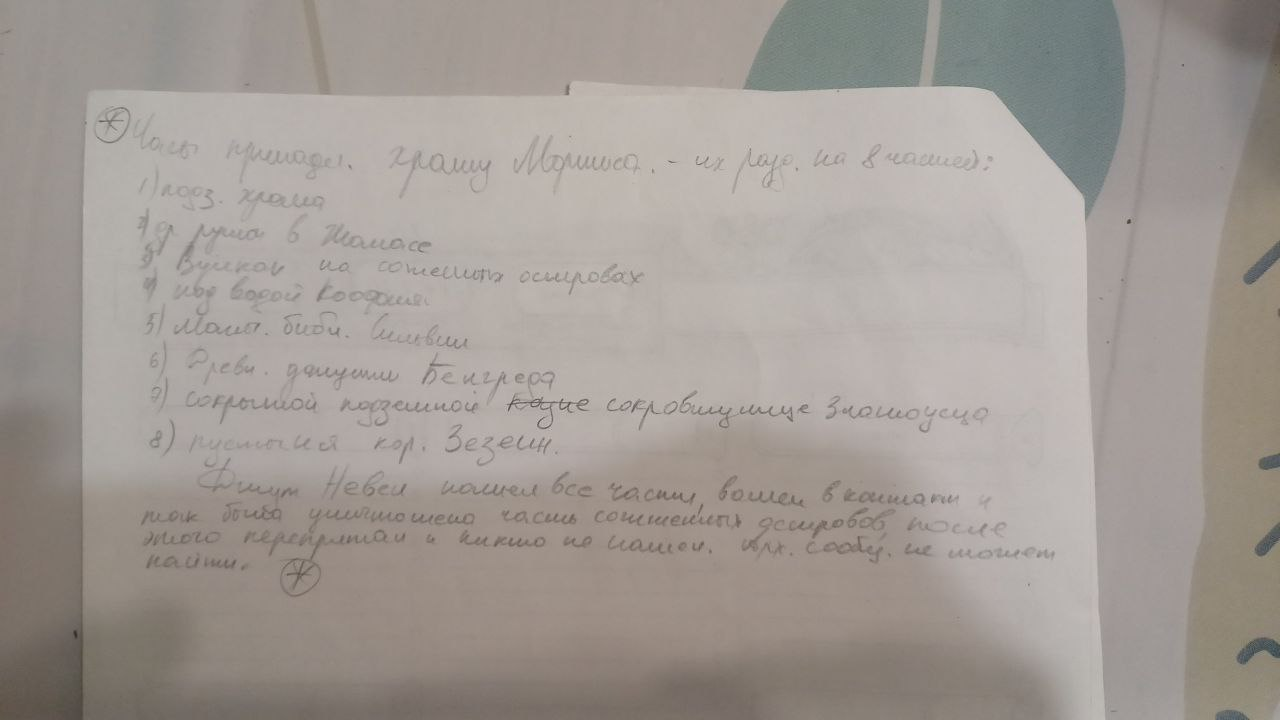 Часы принадл. храму Мортиса. - их разд. на 8 частей:
1) подз. храма
2) др руины в Жамасе
3) Вулкан на сожженных островах
4) под водой
5) библ. Сильвии
6) Древн. Бенгреда
7) сокрытой подземной казне сокровищнице Златоусца
8) пустыня кор. Зезеин.
Невен нашел все части, вошел в контакт и
так была уничтожена часть сожженных островов, после
этого перепрятал и никто не нашел. арх. сообщ. не может
найти.